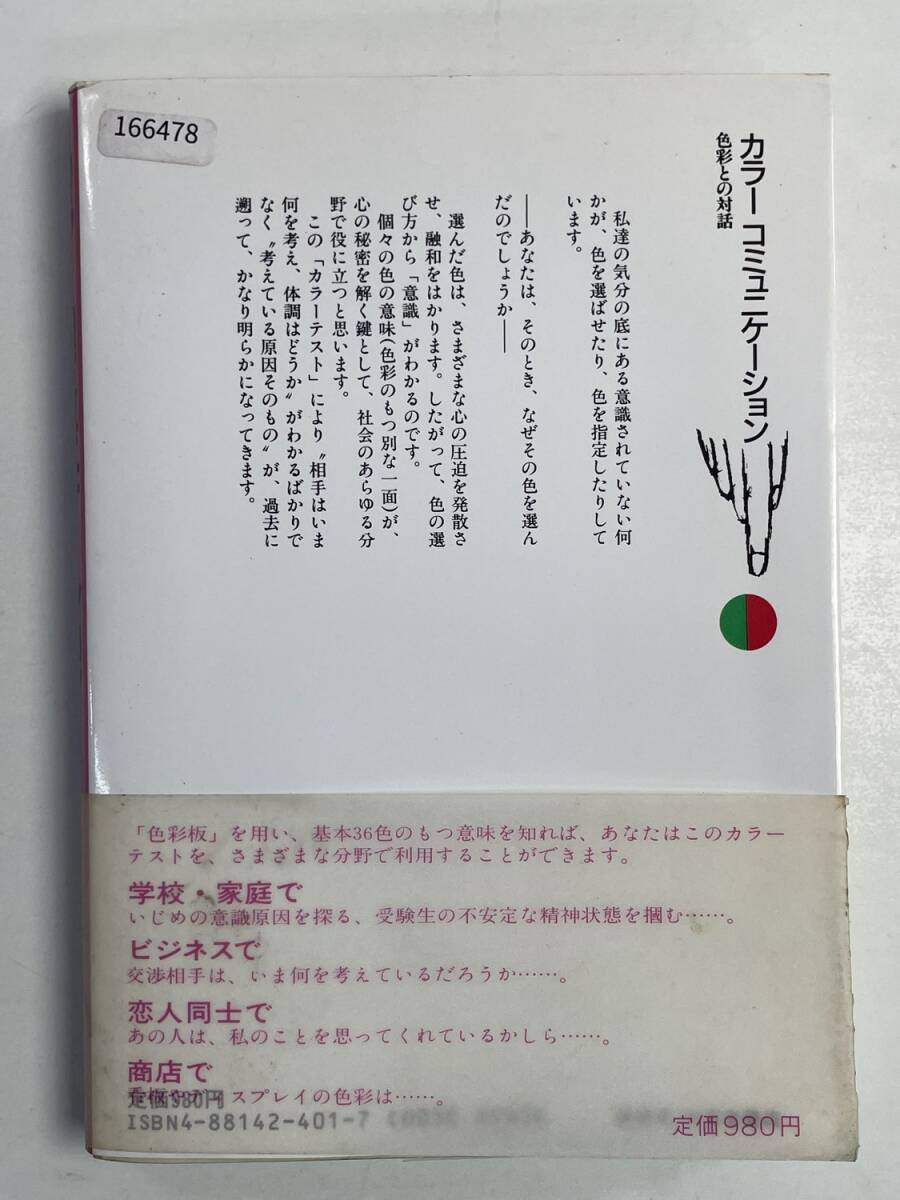 166478
カラー コミュニケーション
色彩との対話
私達の気分の底にある意識されていない何
かが、色を選ばせたり、色を指定したりして
います。
――あなたは、そのとき、なぜその色を選ん
だのでしょうか――
選んだ色は、さまざまな心の圧迫を発散さ
せ、融和をはかります。したがって、色の選
び方から「意識」がわかるのです。
個々の色の意味(色彩のもつ別な一面)が、
心の秘密を解く鍵として、社会のあらゆる分
野で役に立つと思います。
この「カラーテスト」により〝相手はいま
何を考え、体調はどうか〟がわかるばかりで
なく〝考えている原因そのもの〟が、過去に
遡って、かなり明らかになってきます。
「色彩板」を用い、基本36色のもつ意味を知れば、あなたはこのカラー
テストを、さまざまな分野で利用することができます。
学校・家庭で
いじめの意識原因を探る、受験生の不安定な精神状態を摑む……。
ビジネスで
交渉相手は、いま何を考えているだろうか……。
恋人同士で
あの人は、私のことを思ってくれているかしら……。
商店で
看板やディスプレイの色彩は……。
定価980円
ISBN4-88142-401-7
定価980円